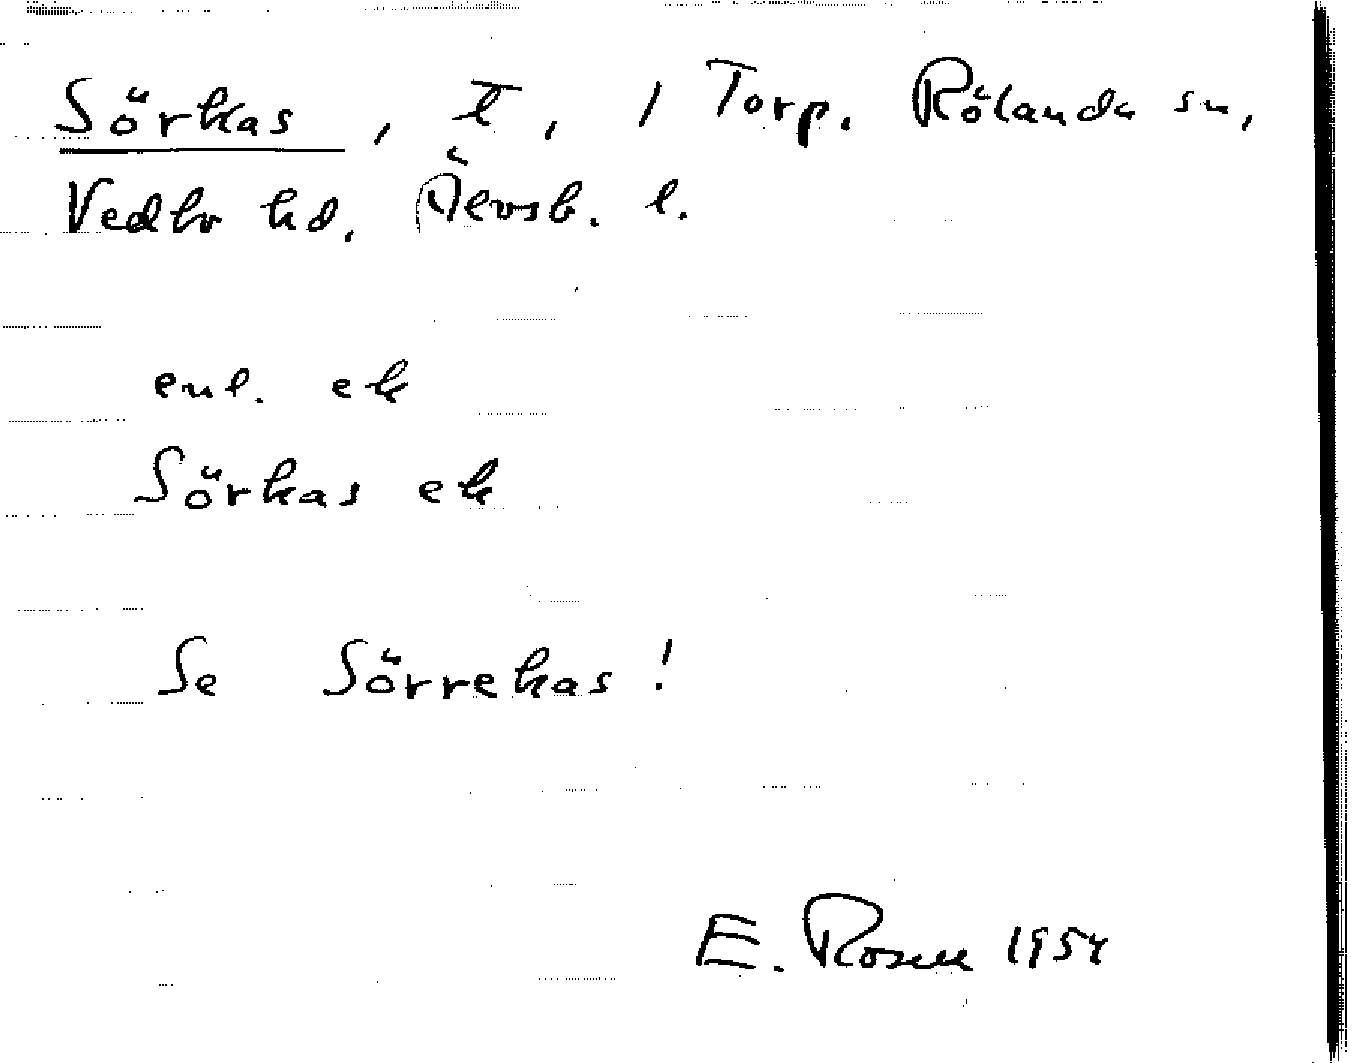 Sörkas, t, / Torp. Rölanda sn,
Vedbo hd. Älvsb. l.
enl. ek
Sörkas ek
Se Sörrekas!
E. Rosen 1954